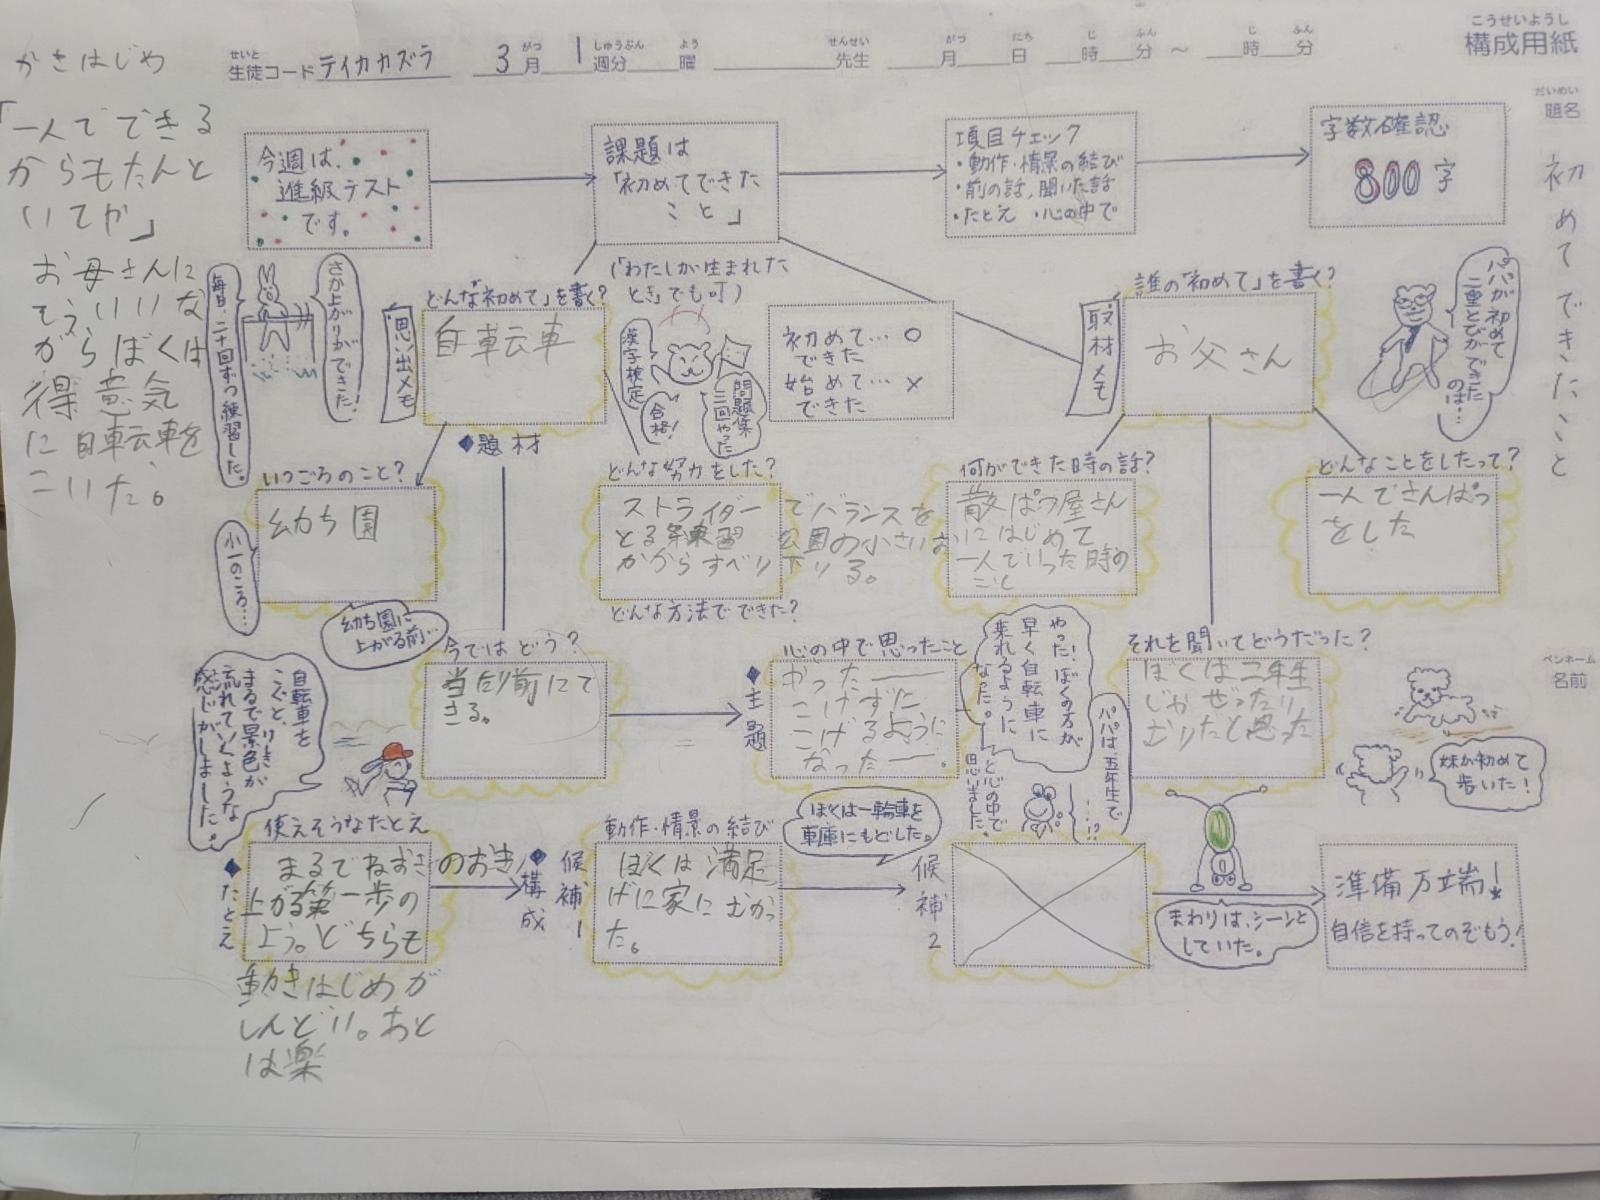 こうせいようし
構成用紙
せいと
生徒コード テイカカズラ 3月 1週分 曜 先生 月 日 時 分 〜 時 分
がつ しゅうぶん よう せんせい がつ にち じ ふん じ ふん
だいめい
題名
初めてできたこと
ペンネーム
名前
かきはじめ
「一人でできる
からもたんと
いてや」
お母さんに
そういいな
がらぼくは
得意気
に自転車を
こいだ。
今週は、
進級テスト
です。
課題は
「初めてできた
こと」
項目チェック
・動作・情景の結び
・前の話、聞いた話
・たとえ ・心の中で
字数確認
800字
さか上がりができた。
毎日、二十回ずつ練習した。
思い出メモ
どんな「初めて」を書く?
(「わたしが生まれた
とき」でも可)
自転車
◆題材
漢字検定
合格!
問題集
三回やった
初めて…○
できた
始めて…×
できた
取材メモ
誰の「初めて」を書く?
お父さん
パパが初めて
二重とびができた
のは…
いつごろのこと?
幼ち園
小一のころ…
幼ち園に
上がる前…
どんな努力をした?
ストライダーでバランスを
とる練習 公園の小さいお
かからすべり下りる。
どんな方法でできた?
何ができた時の話?
散ぱつ屋さん
にはじめて
一人でいった時の
こと
どんなことをしたって?
一人でさんぱつ
をした
今ではどう?
当たり前にで
きる。
◆主題
心の中で思ったこと
かったー
こげずに
こげるように
なったー。
やった!ぼくの方が
早く自転車に
乗れるように
なった。
と心の中で
思いました。
それを聞いてどうだった?
ぼくは二年生
じゃぜったい
むりだと思った
パパは、五年生で
…!?
妹が初めて
歩いた!
自転車を
こぐと、
まるで景色が
流れていくような
感じがしました。
使えそうなたとえ
◆たとえ
まるでねおきのおき
上がる第一歩の
よう。どちらも
動きはじめが
しんどい。あと
は楽
◆構成
動作・情景の結び
候補1
ぼくは満足
げに家にむかっ
た。
ぼくは一輪車を
車庫にもどした。
候補2
まわりは、シーンと
していた。
準備万端!
自信を持ってのぞもう!